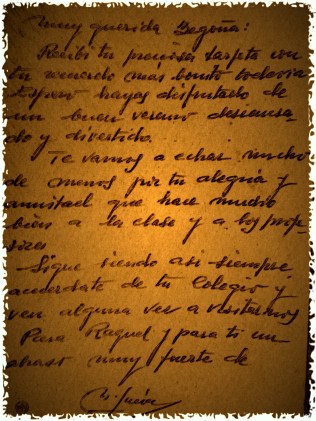 Muy querida Begoña:
Recibí tu preciosa tarjeta con
tu recuerdo mas bonito todavia
Espero hayas disfrutado de
un buen verano descansa-
do y divertido.
Te vamos a echar mucho
de menos por tu alegria y
amistad que hace mucho
bien a la clase y a los prof-
sores
Sigue siendo asi siempre
acuerdate de tu Colegio y
ven alguna vez a visitarnos
Para Raquel y para ti un
abrazo muy fuerte de